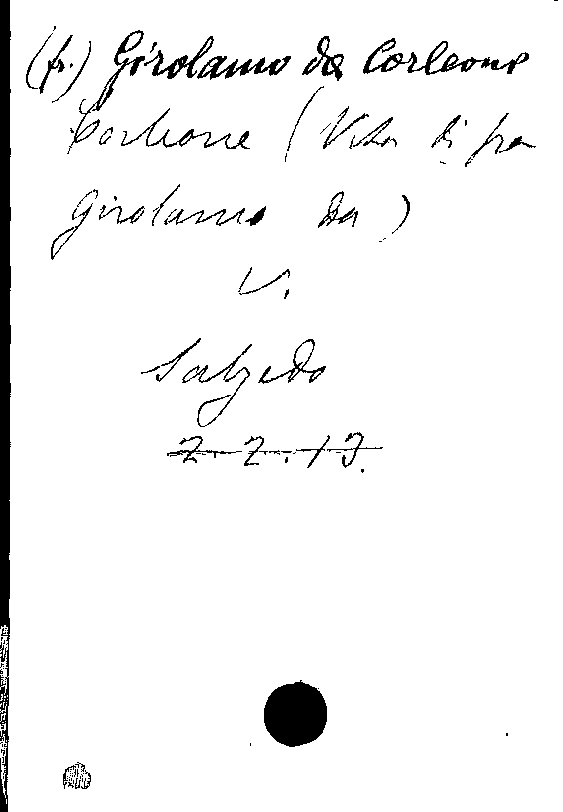 (fr.) Girolamo da Corleone
Corleone (Vita di fra
Girolamo da)
V.
Salzedo
2.2.13.